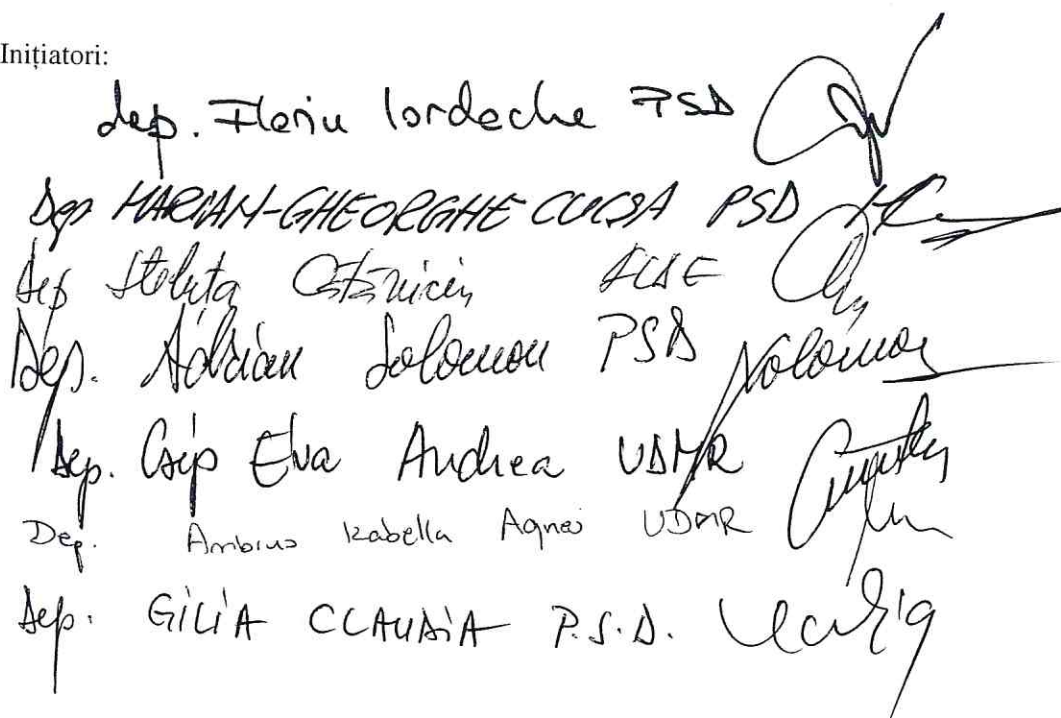 Inițiatori:
dep. Florin Iordache PSD
Dep MARIAN-GHEORGHE CUCȘA PSD
Dep Steluța Cătăniciu ALDE
Dep. Adrian Solomon PSD Solomon
Dep. Csép Éva Andrea UDMR
Dep. Ambrus Izabella Agnes UDMR
Dep. GILIA CLAUDIA P.S.D.